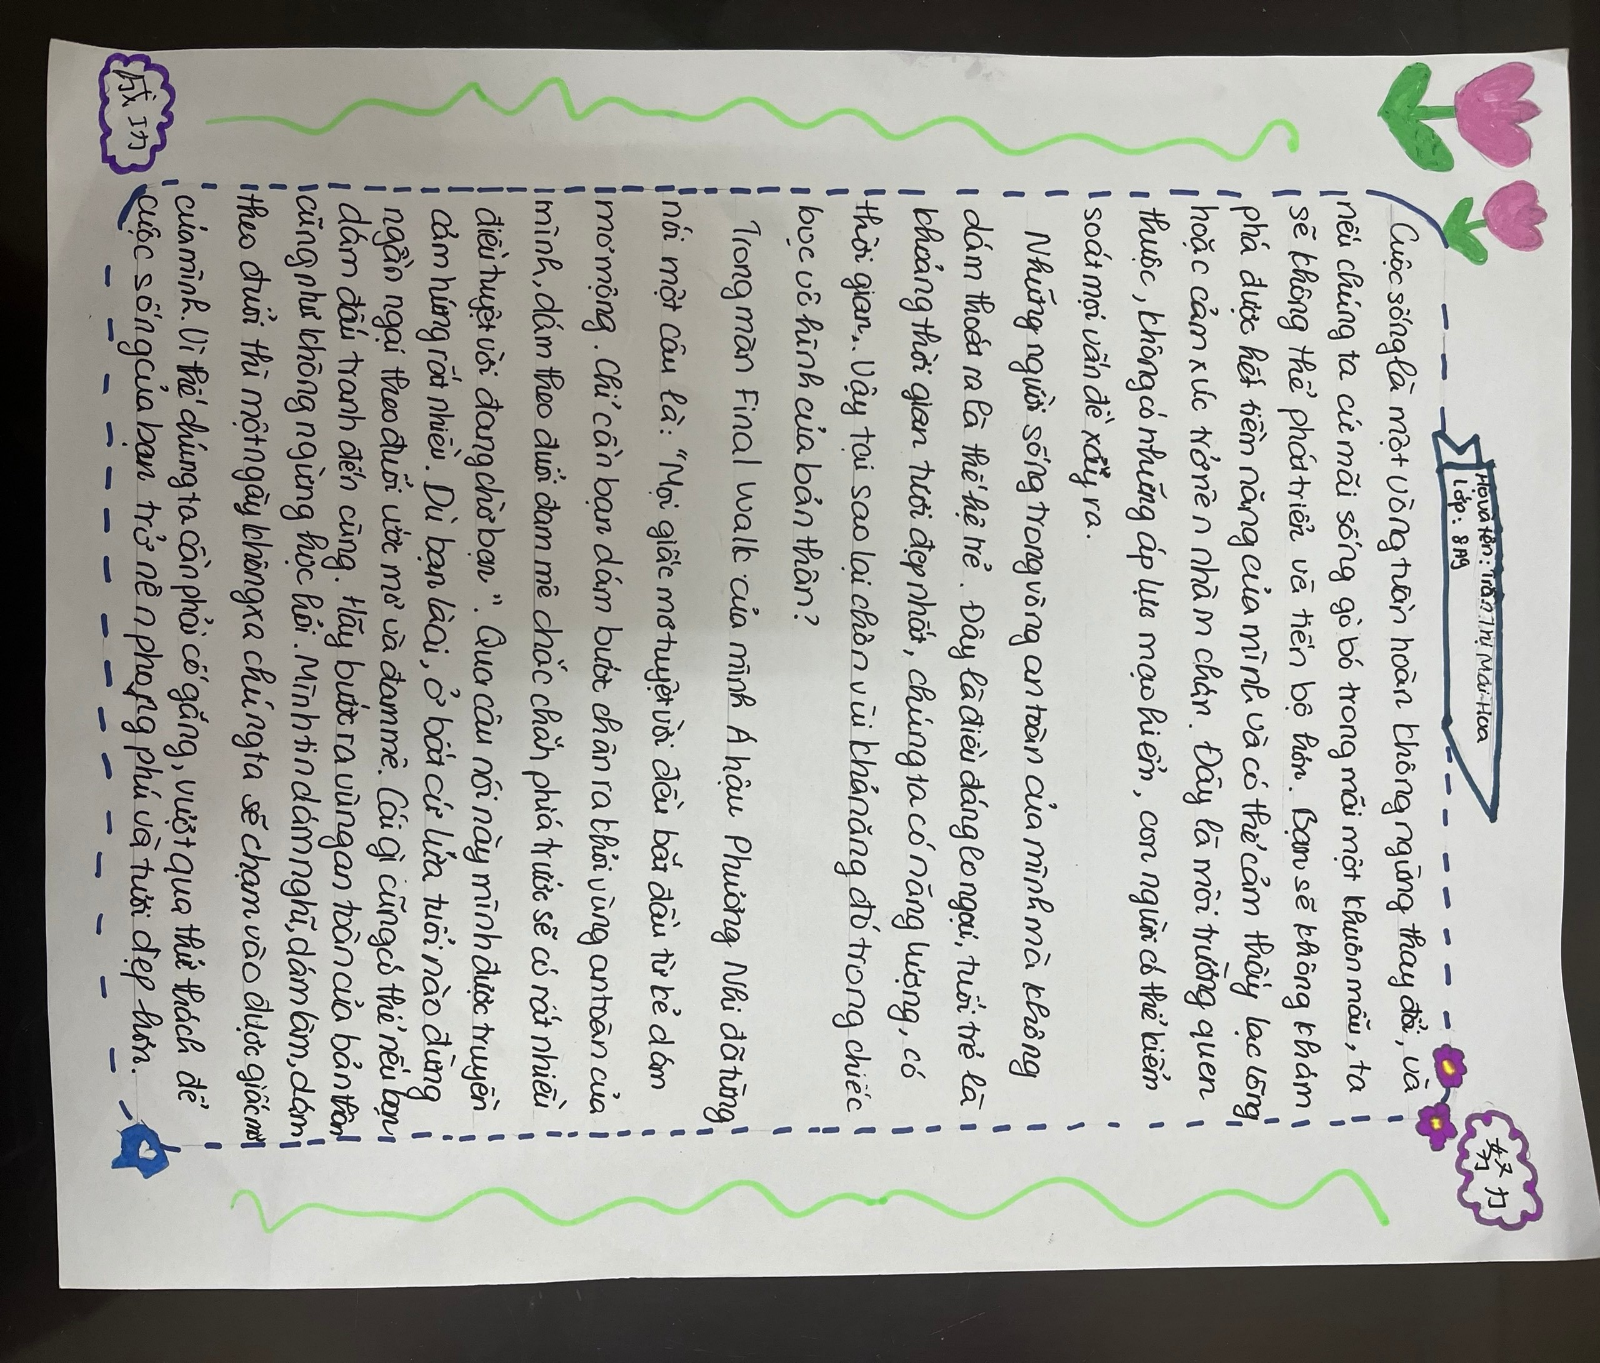 Họ và tên: Trần Thị Mai Hoa
Lớp: 8A9
努力
Cuộc sống là một vòng tuần hoàn không ngừng thay đổi, và
nếu chúng ta cứ mãi sống gò bó trong mãi một khuôn mẫu, ta
sẽ không thể phát triển và tiến bộ hơn. Bạn sẽ không khám
phá được hết tiềm năng của mình và có thể cảm thấy lạc lõng
hoặc cảm xúc trở nên nhàm chán. Đây là môi trường quen
thuộc, không có những áp lực mạo hiểm, con người có thể kiểm
soát mọi vấn đề xảy ra.
Những người sống trong vòng an toàn của mình mà không
dám thoát ra là thế hệ trẻ. Đây là điều đáng lo ngại, tuổi trẻ là
khoảng thời gian tươi đẹp nhất, chúng ta có năng lượng, có
thời gian... Vậy tại sao lại chôn vùi khả năng đó trong chiếc
bọc vô hình của bản thân?
Trong màn Final Walk của mình Á hậu Phương Nhi đã từng
nói một câu là: "Mọi giấc mơ tuyệt vời đều bắt đầu từ kẻ dám
mơ mộng. Chỉ cần bạn dám bước chân ra khỏi vùng an toàn của
mình, dám theo đuổi đam mê chắc chắn phía trước sẽ có rất nhiều
điều tuyệt vời đang chờ bạn". Qua câu nói này mình được truyền
cảm hứng rất nhiều. Dù bạn là ai, ở bất cứ lứa tuổi nào đừng
ngần ngại theo đuổi ước mơ và đam mê. Cái gì cũng có thể nếu bạn
dám đấu tranh đến cùng. Hãy bước ra vùng an toàn của bản thân
cũng như không ngừng học hỏi. Mình tin dám nghĩ, dám làm, dám
theo đuổi thì một ngày không xa chúng ta sẽ chạm vào được giấc mơ
của mình. Vì thế chúng ta cần phải cố gắng, vượt qua thử thách để
cuộc sống của bạn trở nên phong phú và tươi đẹp hơn.
成功